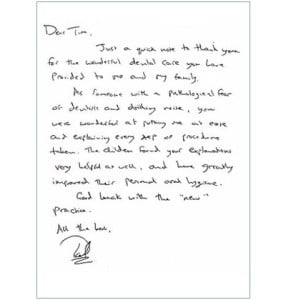 Dear Tim,
Just a quick note to thank you
for the wonderful dental care you have
provided to me and my family.
As someone with a pathological fear
of dentists and drilling noise, you
were wonderful at putting me at ease
and explaining every step of procedure
taken. The children found your explanations
very helpful as well, and have greatly
improved their personal oral hygiene.
Good luck with the "new"
practice.
All the best,